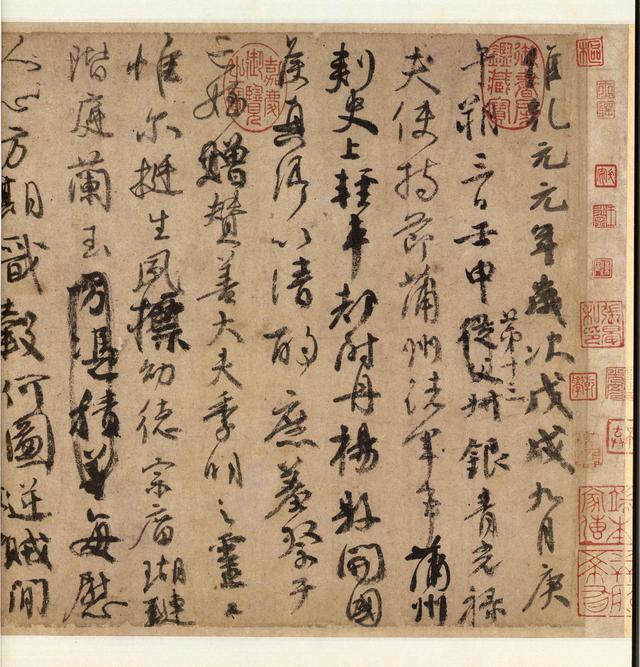 維乾元元年歲次戊戌九月庚
午朔三日壬申第十三從父叔銀青光祿
夫使持節蒲州諸軍事蒲州
刺史上輕車都尉丹楊縣開國
侯真卿以清酌庶羞祭于
亡姪贈贊善大夫季明之靈曰
惟爾挺生夙標幼德宗廟瑚璉
階庭蘭玉方憑積善每慰
人心方期戩穀何圖逆賊閒
御書房鑑藏寶
嘉慶御覽之寶